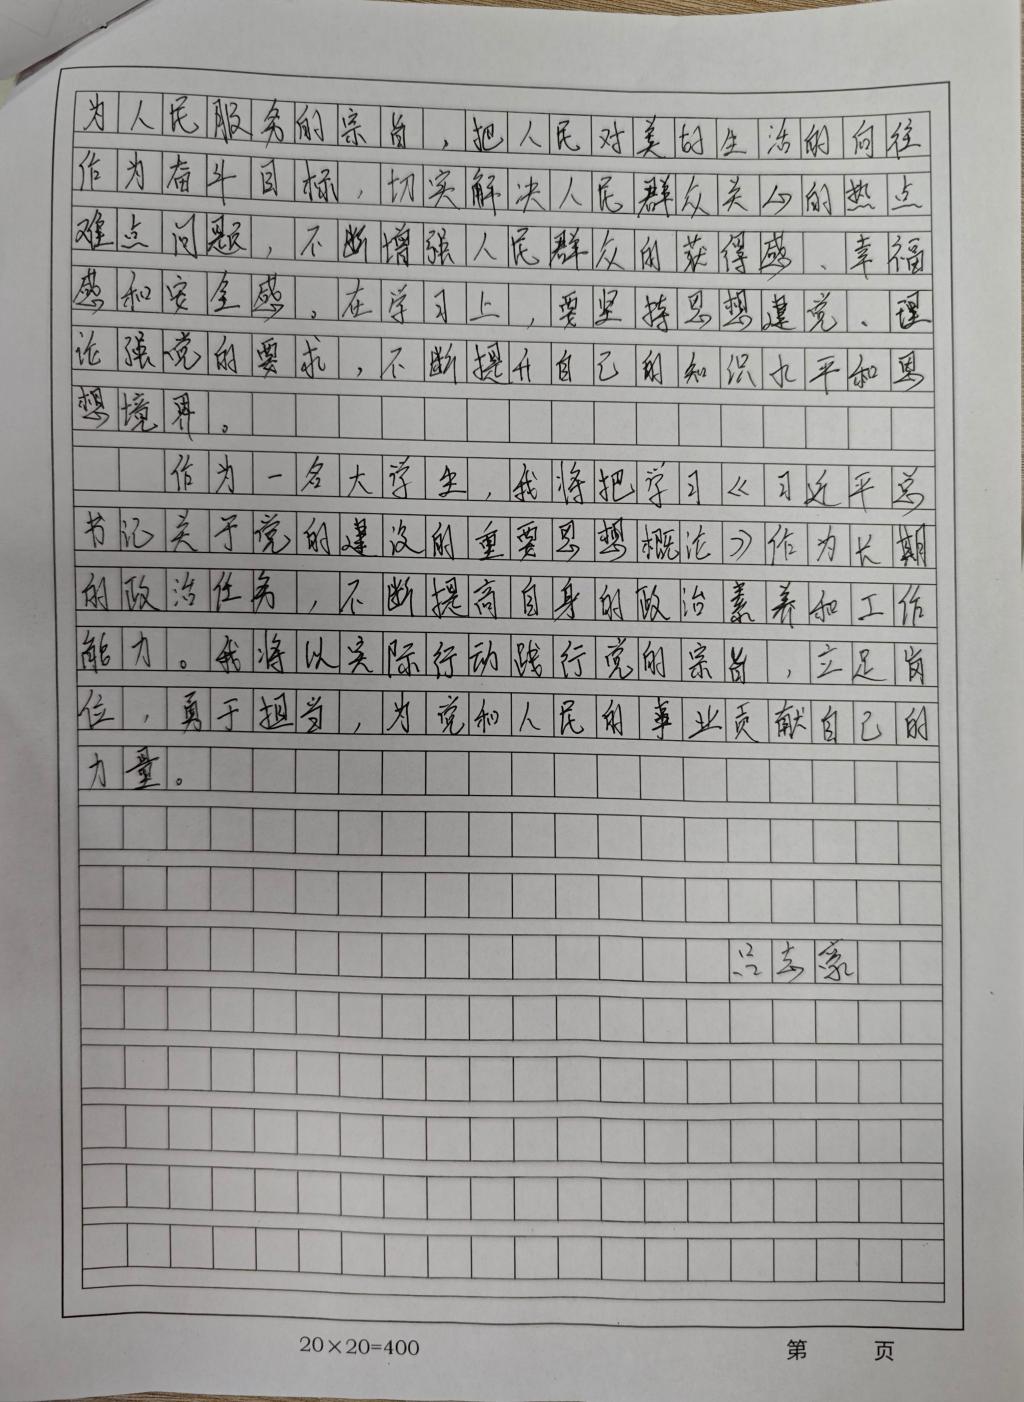 为人民服务的宗旨，把人民对美好生活的向往
作为奋斗目标，切实解决人民群众关心的热点
难点问题，不断增强人民群众的获得感、幸福
感和安全感。在学习上，要坚持思想建党、理
论强党的要求，不断提升自己的知识水平和思
想境界。
作为一名大学生，我将把学习《习近平总
书记关于党的建设的重要思想概论》作为长期
的政治任务，不断提高自身的政治素养和工作
能力。我将以实际行动践行党的宗旨，立足岗
位，勇于担当，为党和人民的事业贡献自己的
力量。
吕志豪
20×20=400
第 页